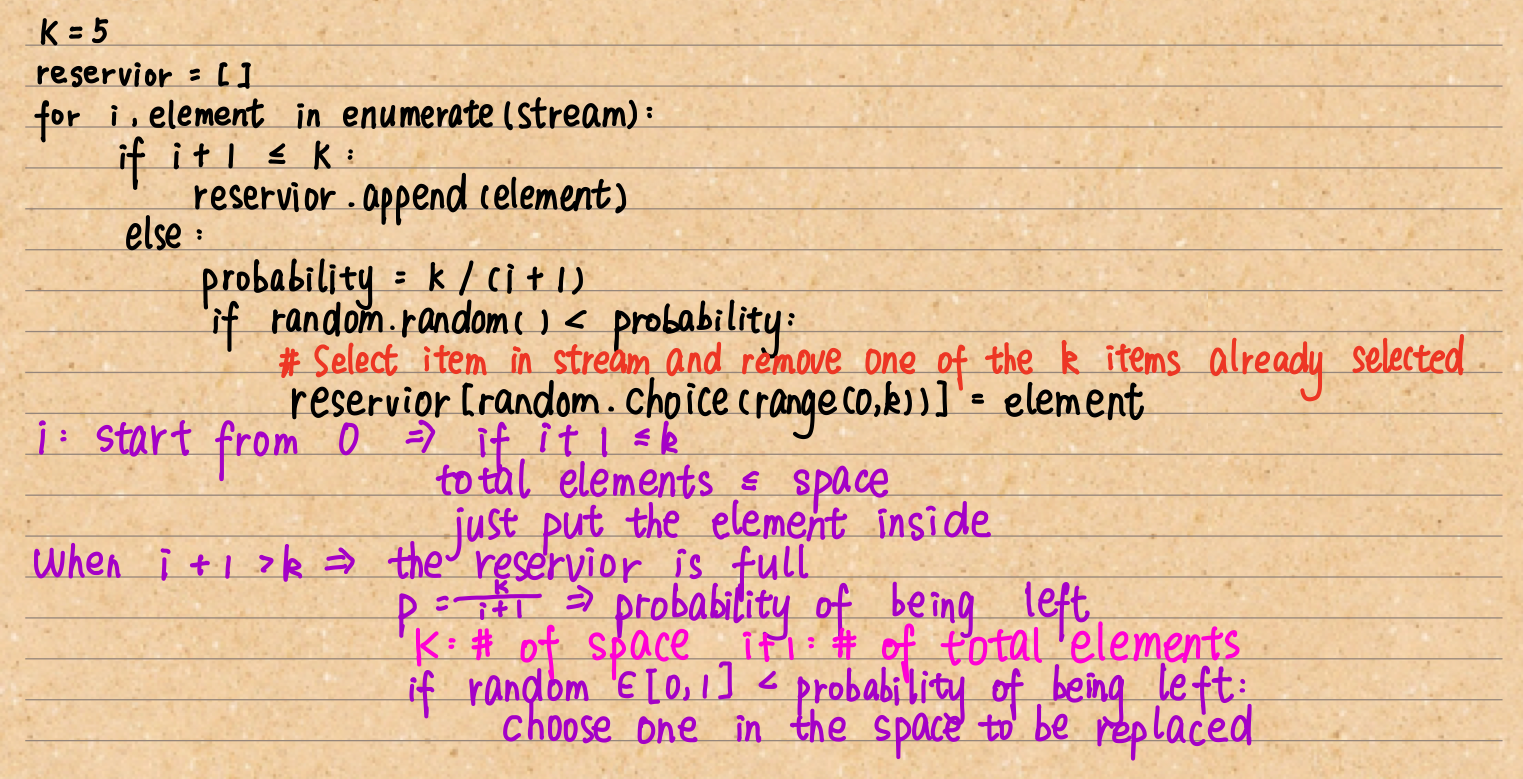 K = 5
reservior = []
for i, element in enumerate(stream):
if i + 1 ≤ K:
reservior.append(element)
else:
probability = k / (i + 1)
if random.random() < probability:
# Select item in stream and remove one of the k items already selected
reservior[random.choice(range(0,k))] = element
i: start from 0 ⇒ if i + 1 ≤ k
total elements ≤ space
just put the element inside
When i + 1 > k ⇒ the reservior is full
p = k/(i+1) ⇒ probability of being left
K: # of space i+1: # of total elements
if random ∈ [0,1] < probability of being left:
choose one in the space to be replaced